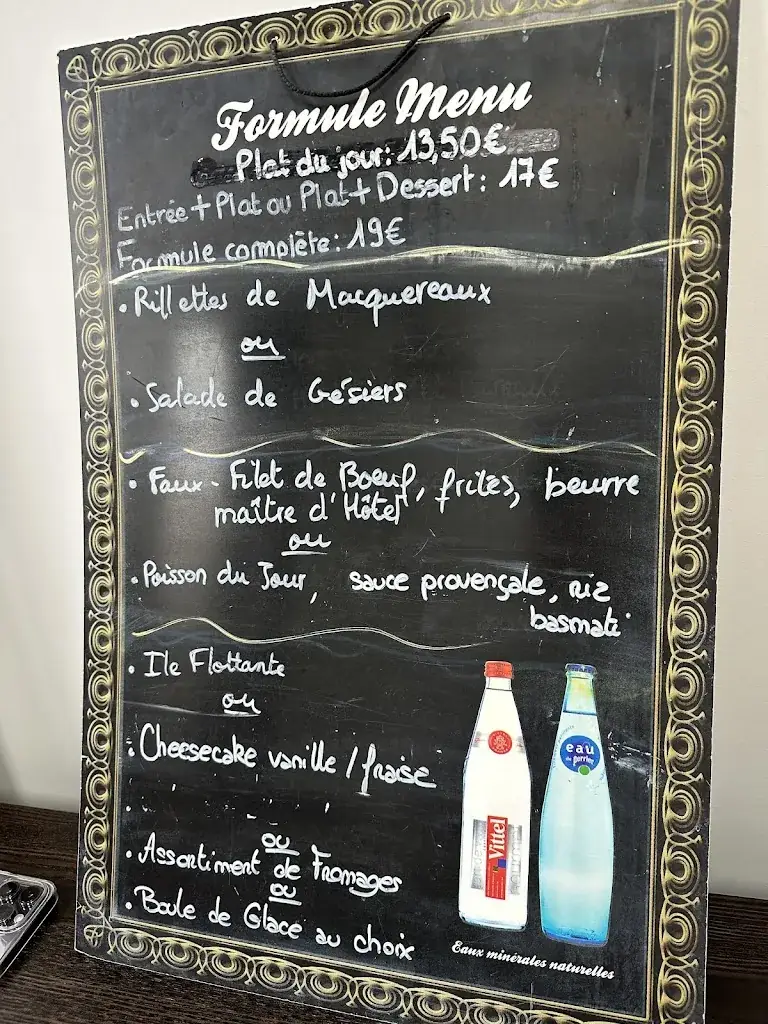 Formule Menu
Plat du jour: 13,50€
Entrée + Plat ou Plat + Dessert: 17€
Formule complète: 19€
• Rillettes de Macquereaux
ou
• Salade de Gésiers
• Faux-Filet de Boeuf, frites, beurre
maître d'Hôtel
ou
• Poisson du Jour, sauce provençale, riz
basmati
• Ile Flottante
ou
• Cheesecake vanille / fraise
ou
• Assortiment de Fromages
ou
• Boule de Glace au choix
Vittel
eau
de perrier
Eaux minérales naturelles